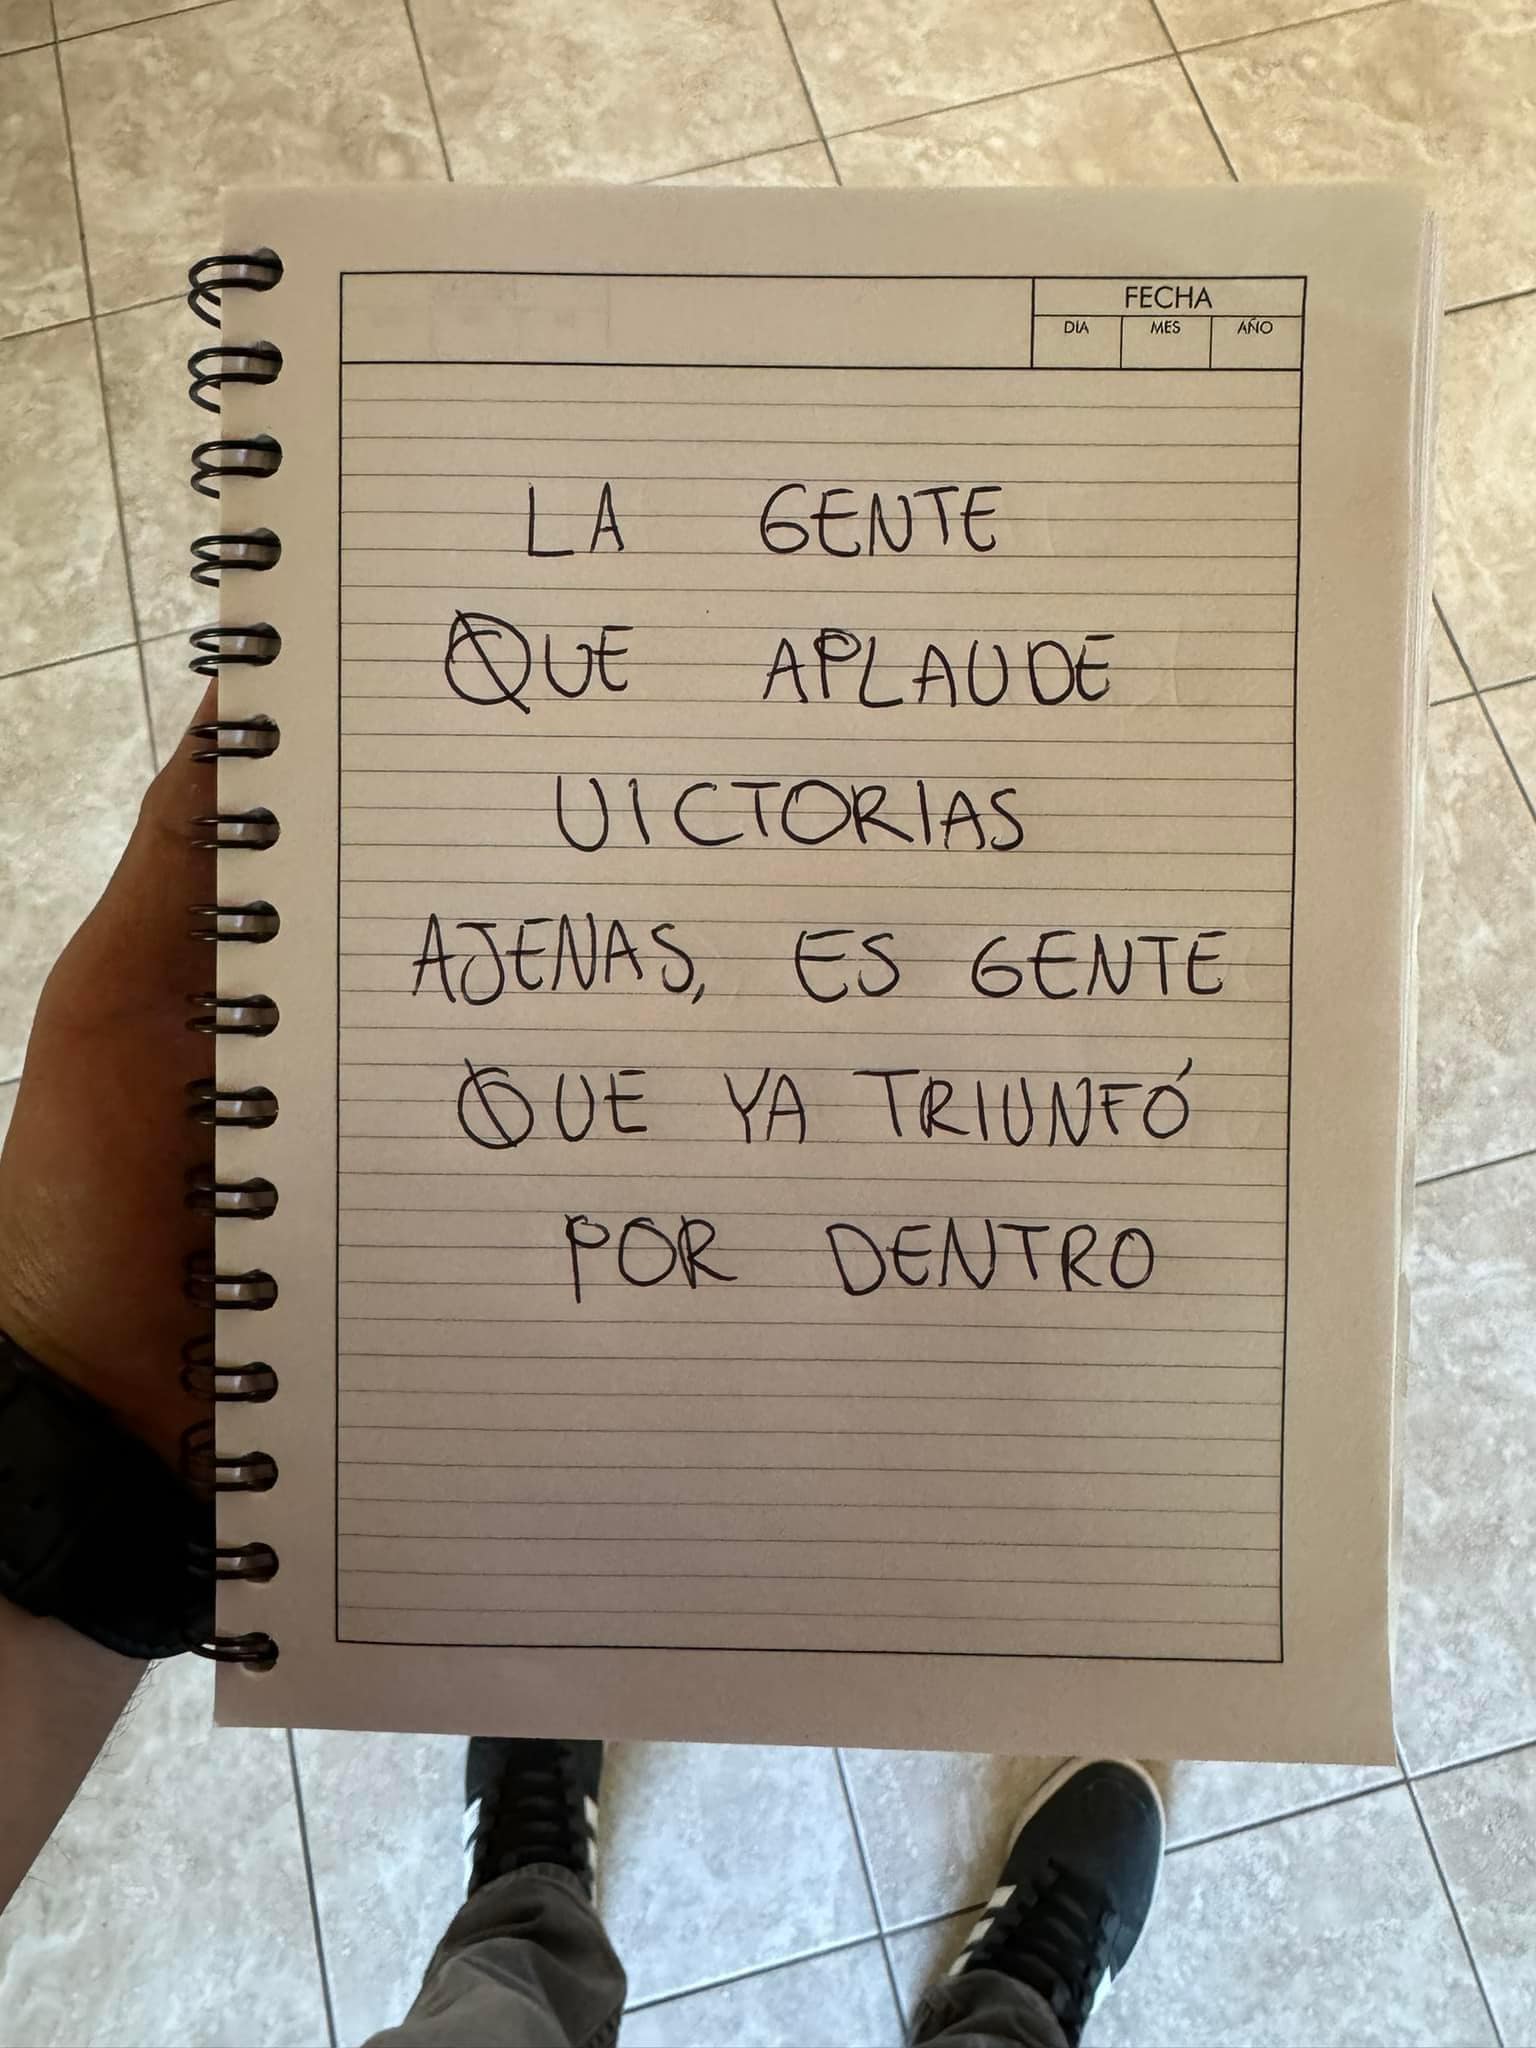 FECHA
DIA MES AÑO
LA GENTE
QUE APLAUDE
VICTORIAS
AJENAS, ES GENTE
QUE YA TRIUNFÓ
POR DENTRO